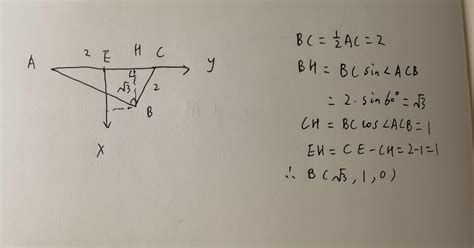 A 2 E H C y
√3 2
B
x
BC = ½AC = 2
BH = BC sin∠ACB
= 2·sin60° = √3
CH = BC cos∠ACB = 1
EH = CE - CH = 2-1 = 1
∴ B(√3, 1, 0)